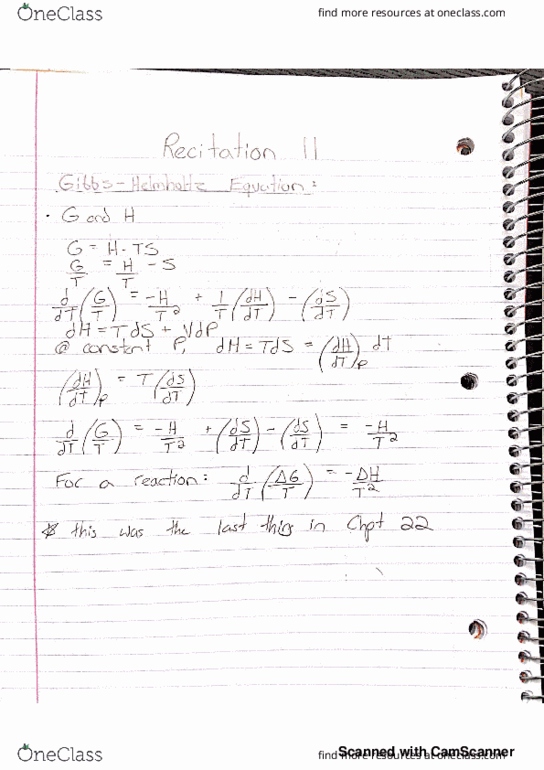 OneClass
find more resources at oneclass.com
Recitation 11
Gibbs-Helmholtz Equation:
· G and H
G = H - TS
G/T = H/T - S
d/dT (G/T) = -H/T² + 1/T (dH/dT) - (dS/dT)
dH = TdS + VdP
@ constant P, dH = TdS = (dH/dT)P dT
(dH/dT)P = T (dS/dT)
d/dT (G/T) = -H/T² + (dS/dT) - (dS/dT) = -H/T²
For a reaction: d/dT (ΔG/T) = -ΔH/T²
* this was the last thing in Chpt 22
OneClass
find more resources at oneclass.com
Scanned with CamScanner